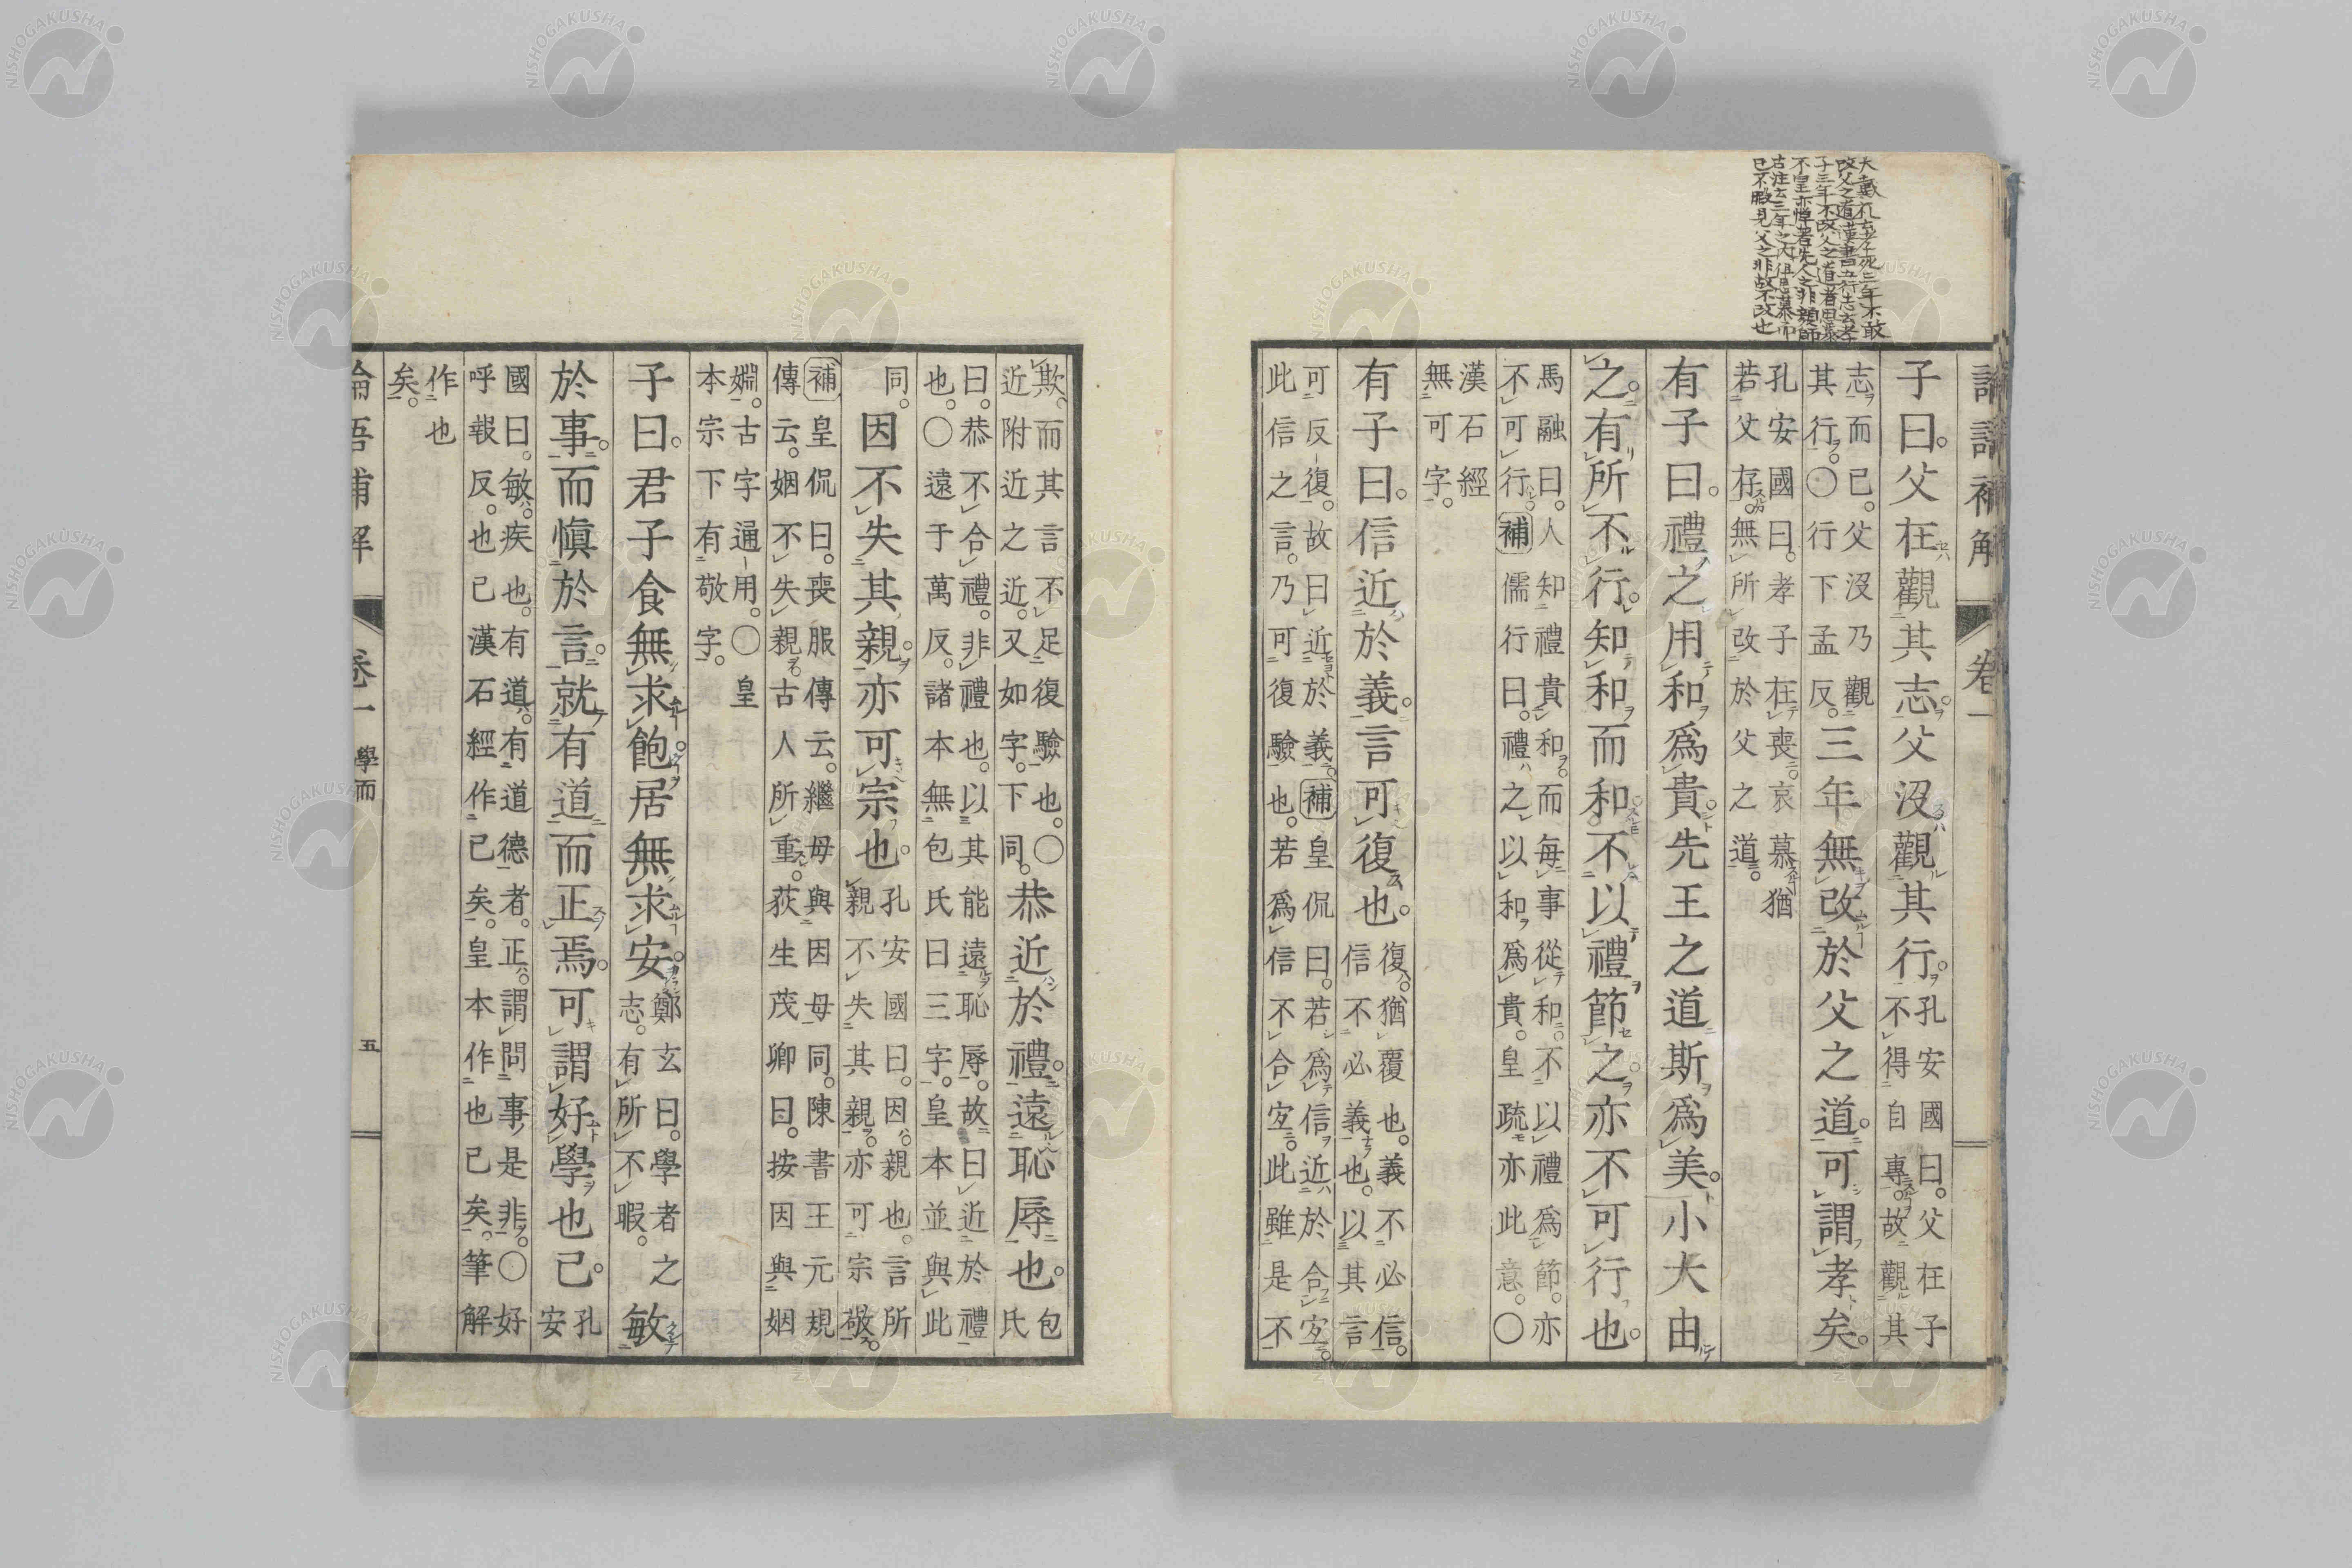 大戴礼云父死三年不敢
改父之道漢書五行志云孝
子三年不改父之道者思慕
不皇亦憚著先人之非親師
古注云三年之内但思慕而
已不暇見父之非故不改也
論語補解 卷一
子曰。父在觀其志。父沒觀其行。孔安國曰。父在子
不得自專。故觀其
志而已。父沒乃觀
其行。〇行下孟反。三年無改於父之道。可謂孝矣。
孔安國曰。孝子在喪。哀慕猶
若父存。無所改於父之道。
有子曰。禮之用和爲貴先王之道斯爲美。小大由
之。有所不行。知和而和不以禮節之亦不可行也。
馬融曰。人知禮貴和。而每事從和。不以禮爲節。亦
不可行。補儒行曰。禮之以和爲貴。皇疏亦此意。〇
漢石經
無可字。
有子曰。信近於義。言可復也。復。猶覆也。義不必信。
信不必義也。以其言
可反復。故曰近於義。補皇侃曰。若爲信近於合宜。
此信之言。乃可復驗也。若爲信不合宜。此雖是不
欺。而其言不足復驗也。〇
近附近之近。又如字。下同。恭近於禮。遠恥辱也。包
氏
曰。恭不合禮。非禮也。以其能遠恥辱。故曰近於禮
也。〇遠于萬反。諸本無包氏曰三字。皇本並與此
同。因不失其親。亦可宗也。孔安國曰。因。親也。言所
親不失其親。亦可宗敬。
補皇侃曰。喪服傳云。繼母與因母同。陳書王元規
傳云。姻不失親。古人所重。荻生茂卿曰。按因與姻
婣。古字通用。〇皇
本宗下有敬字。
子曰。君子食無求飽。居無求安。鄭玄曰。學者之
志。有所不暇。敏
於事。而愼於言。就有道而正焉。可謂好學也已。孔
安
國曰。敏。疾也。有道。有道德者。正。謂問事是非。〇好
呼報反。也已漢石經作已矣。皇本作也已矣。筆解
作也
矣。
論語補解 卷一 學而 五